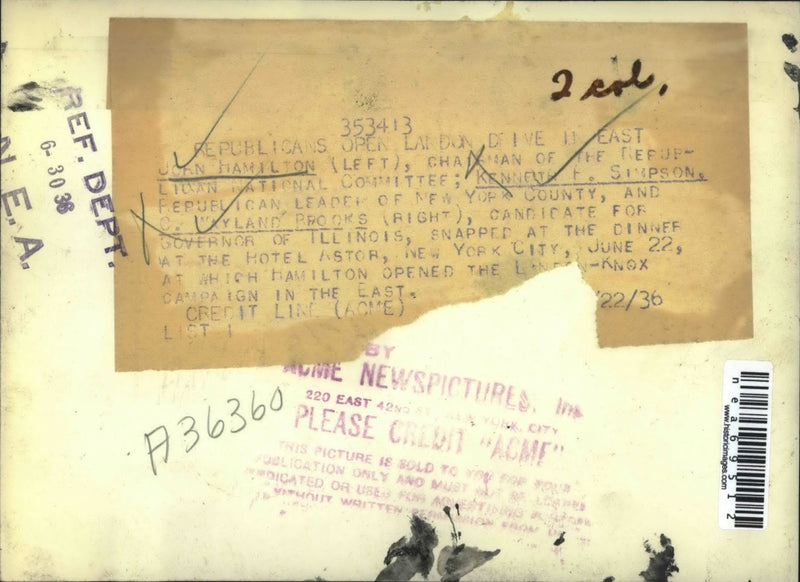 2 col.
353413
REPUBLICANS OPEN LANDON DRIVE IN EAST
JOHN HAMILTON (LEFT), CHAIRMAN OF THE REPUB-
LICAN NATIONAL COMMITTEE; KENNETH F. SIMPSON,
REPUBLICAN LEADER OF NEW YORK COUNTY, AND
C. WAYLAND BROOKS (RIGHT), CANDIDATE FOR
GOVERNOR OF ILLINOIS, SNAPPED AT THE DINNER
AT THE HOTEL ASTOR, NEW YORK CITY, JUNE 22,
AT WHICH HAMILTON OPENED THE LANDON-KNOX
CAMPAIGN IN THE EAST.
CREDIT LINE (ACME)
LIST 1
/22/36
REF. DEPT.
6-30-36
N. E. A.
BY
ACME NEWSPICTURES, Inc
220 EAST 42ND ST., NEW YORK CITY
PLEASE CREDIT "ACME"
THIS PICTURE IS SOLD TO YOU FOR YOUR
PUBLICATION ONLY AND MUST NOT BE LOANED
SYNDICATED OR USED FOR ADVERTISING PURPOSES
WITHOUT WRITTEN PERMISSION FROM US
A36360
nea69512
www.historicimages.com